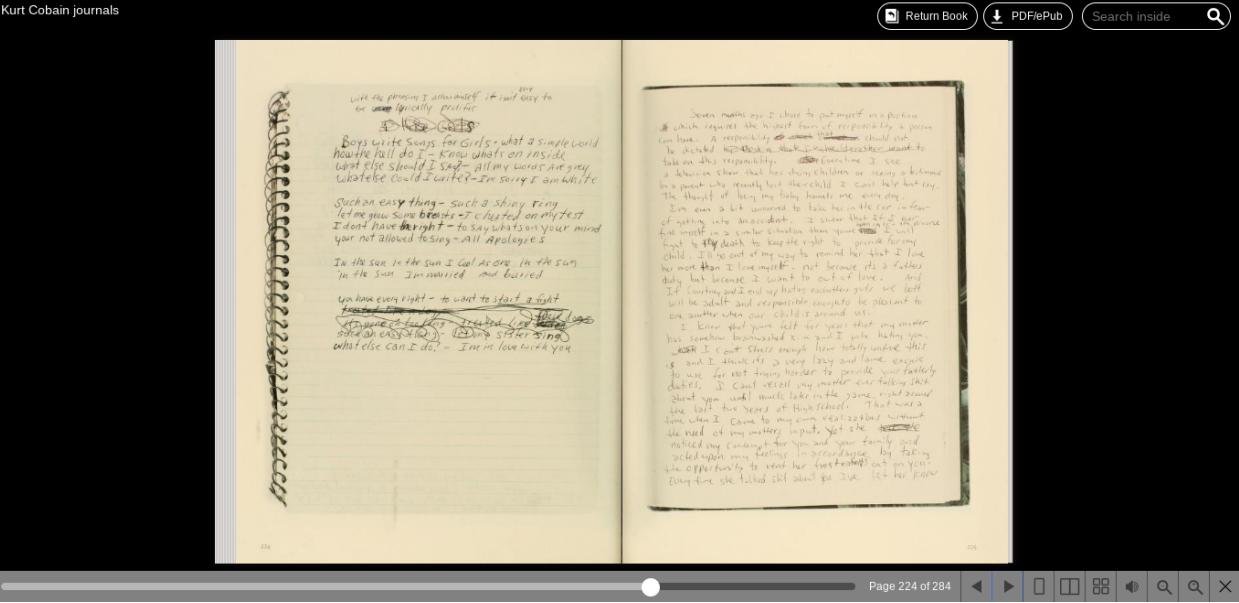 Kurt Cobain journals
Return Book
PDF/ePub
Search inside
with the phrasing I allow myself it isnt very easy to
be lyrically prolific
Boys write songs for Girls - what a simple world
how the hell do I - Know whats on inside
what else should I say? - All my words are grey
what else could I write? - Im sorry I am white
Such an easy thing - such a shiny ring
let me grow some breasts - I cheated on my test
I dont have the right - to say whats on your mind
your not allowed to sing - All Apologies
In the sun in the sun I feel As one in the sun
in the sun Im married and buried
you have every right - to want to start a fight
such an easy thing - let one sister sing
what else can I do? - Im in love with you
Seven months ago I chose to put myself in a position
which requires the highest form of responsibility a person
can have. A responsibility that should not
be dictated
take on this responsibility. Everytime I see
a television show that has dying children or seeing a testimonial
by a parent who recently lost their child I cant help but cry.
The thought of losing my baby haunts me every day.
I'm even a bit unnerved to take her in the car in fear
of getting into an accident. I swear that if I ever
find myself in a similar situation than youve I will
fight to my death to keep the right to provide for my
child. I'll go out of my way to remind her that I love
her more than I love myself. not because its a fathers
duty but because I want to out of love. And
If Courtney and I end up hating each others guts we both
will be adult and responsible enough to be pleasant to
one another when our child is around us.
I know that youve felt for years that my mother
has somehow brainwashed Kim and I into hating you.
I cant stress enough how totally untrue this
is and I think its a very lazy and lame excuse
to use for not trying harder to provide your fatherly
duties. I cant recall my mother ever talking shit
about you until much later in the game, right around
the last two years of Highschool. That was a
time when I came to my own realizations without
the need of my mothers input. Yet she
noticed my contempt for you and your family and
acted upon my feelings in accordance by taking
the opportunity to vent her frustrations out on you.
Every time she talked shit about you Ive let her know
224
225
Page 224 of 284